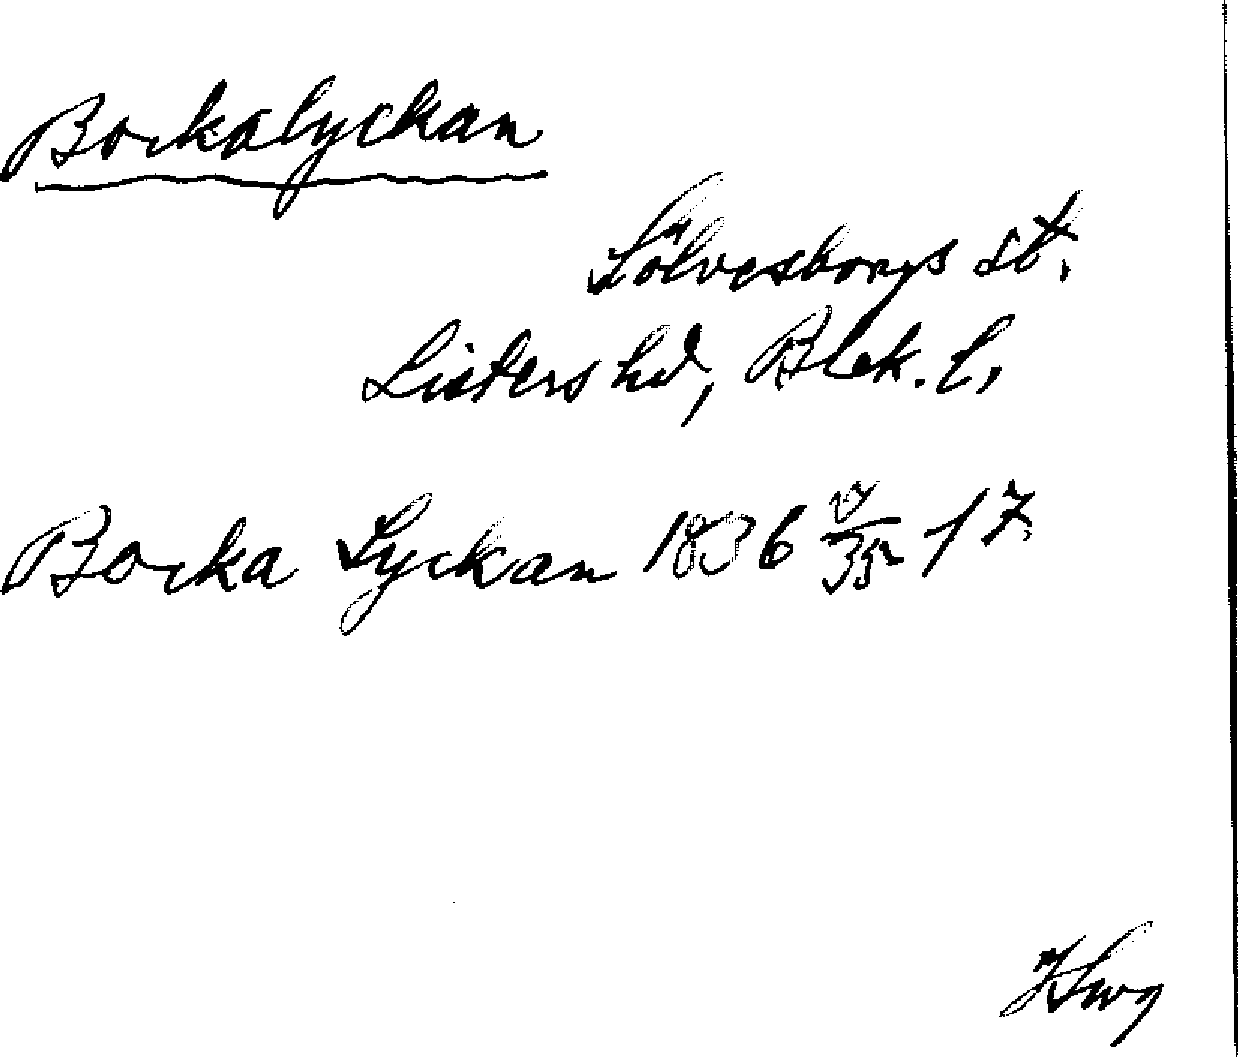 Bockalyckan
Sölvesborgs st.
Listers hd, Blek. l.
Bocka Lyckan 1836 17